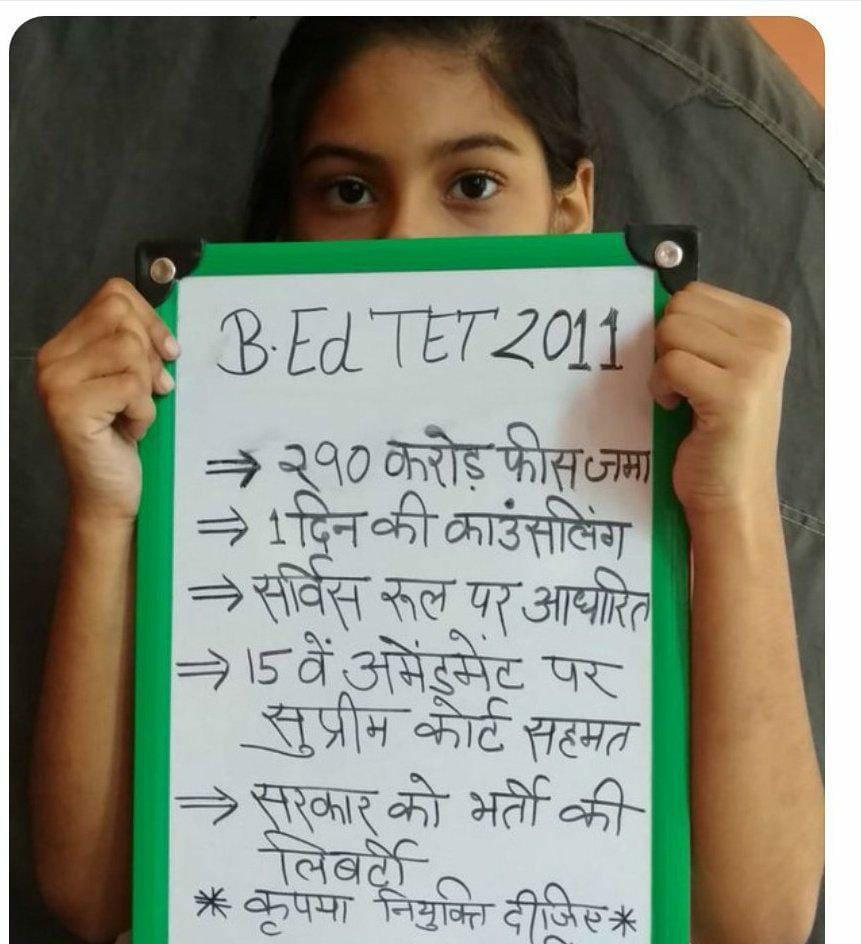 B.Ed TET 2011
⇒ २९० करोड़ फीस जमा
⇒ 1 दिन की काउंसलिंग
⇒ सर्विस रूल पर आधारित
⇒ 15 वें अमेंडमेंट पर
सुप्रीम कोर्ट सहमत
⇒ सरकार को भर्ती की
लिबर्टी
* कृपया नियुक्ति दीजिए *